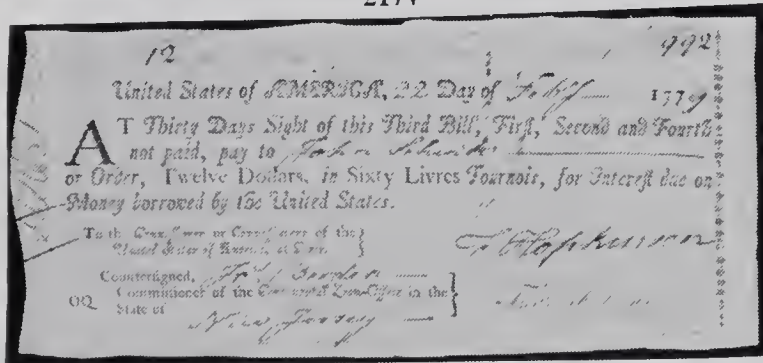 12 992
United States of AMERICA, 22 Day of Feby 1779
AT Thirty Days Sight of this Third Bill, First, Second and Fourth
not paid, pay to John
or Order, Twelve Dollars, in Sixty Livres Tournois, for Interest due on
Money borrowed by the United States.
To the Commissioner or Commissioners of the
United States of America, at Paris.
F Hopkinson
Countersigned,
Commissioner of the Continental Loan-Office in the
State of
New Jersey